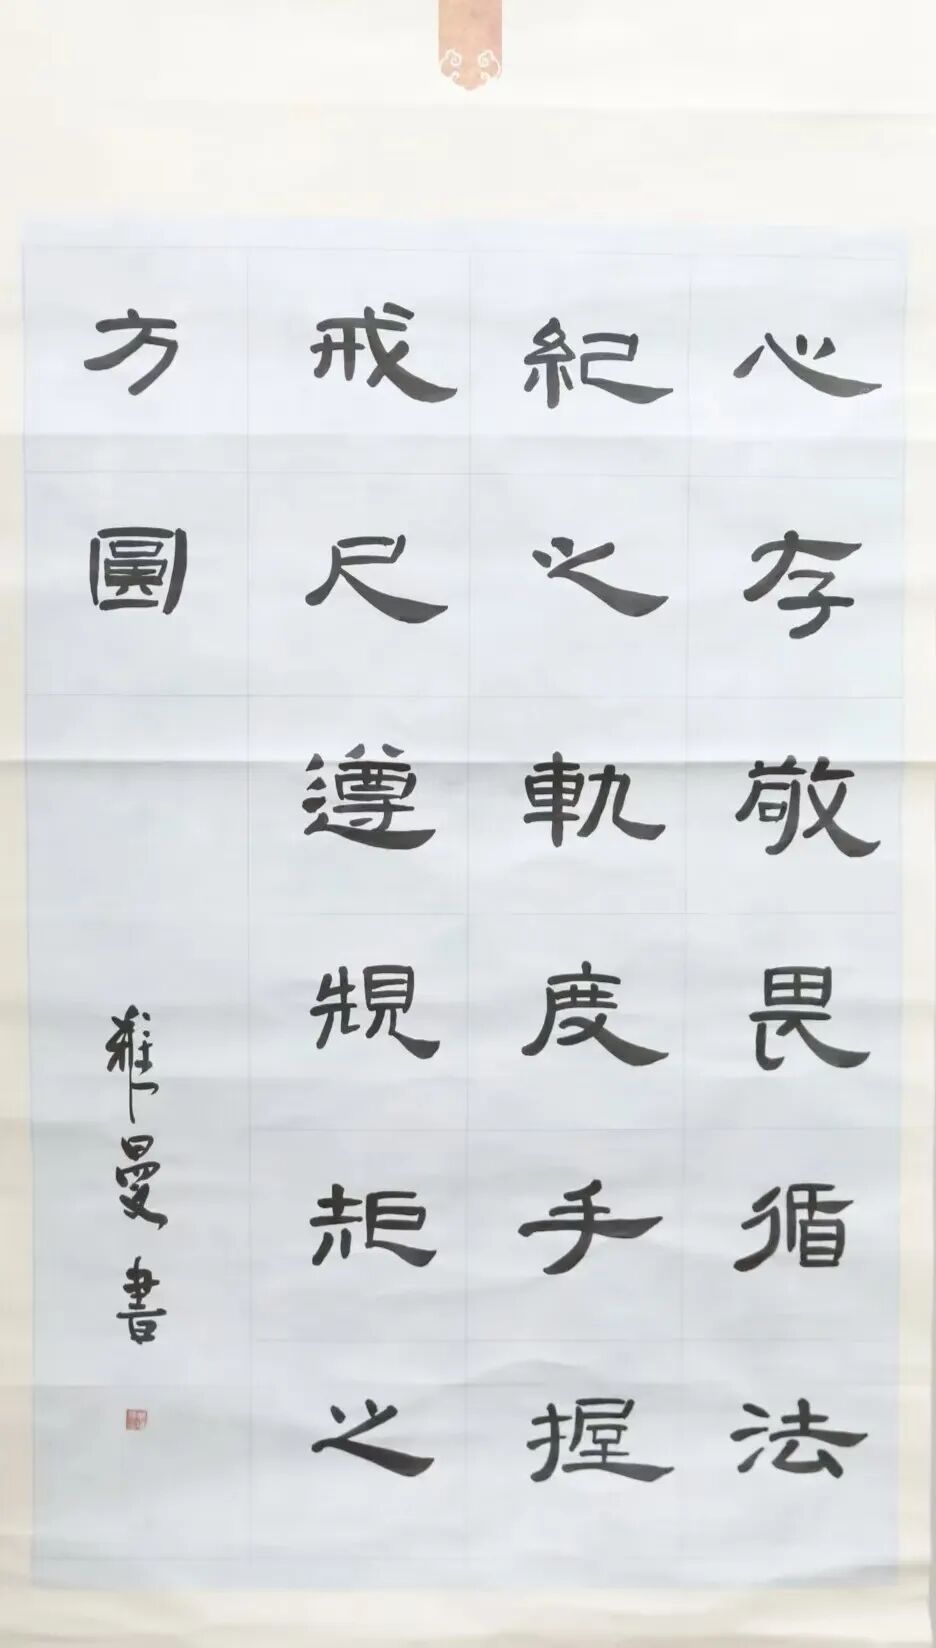 心存敬畏循法
紀之軌度手握
戒尺遵規矩之
方圓
雅曼書